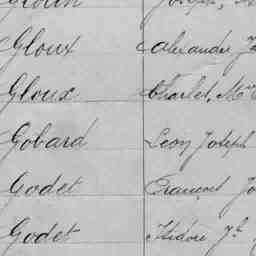 Gloux Alexandre
Gloux Charles, M
Gobard Leon Joseph
Godet François Jo
Godet Isidore Jh